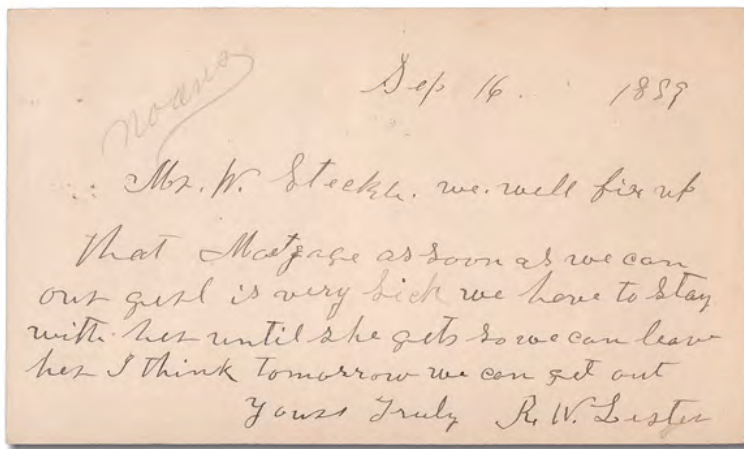 no ans
Sep 16. 1889
Mr. W. Steckh. we. well fix up
that Mortgage as soon as we can
our gurl is very sick we have to stay
with her until she gets so we can leave
her I think tomorrow we can get out
Yours Truly R. W. Lester